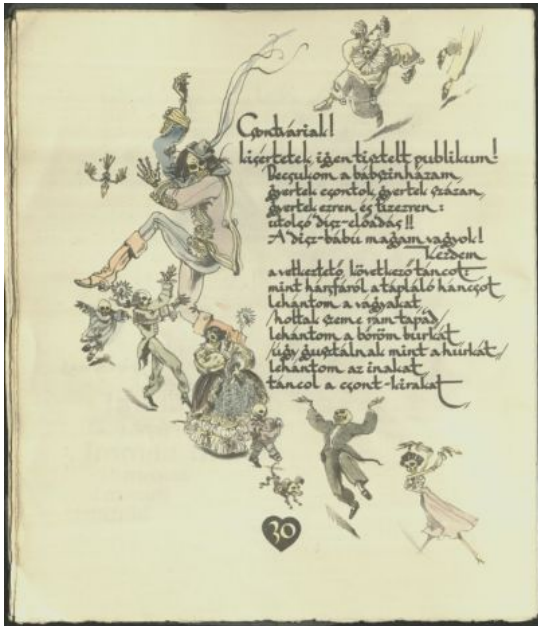 Csontváriak!
kisértetek igen tisztelt publikum!
Becsukom a bábszinházam,
gyertek csontok gyertek százan,
gyertek ezren és tizezren:
utolsó disz-előadás!!
A disz-bábu magam vagyok!
Kezdem
a vetkeztető következő táncot:
mint hársfáról a tápláló háncsot
lehántom a vágyakat
/holtak szeme rám tapad/
lehántom a bőröm burkát
/úgy gusztálnak mint a hurkát/
lehántom az inakat
táncol a csont-kirakat
30